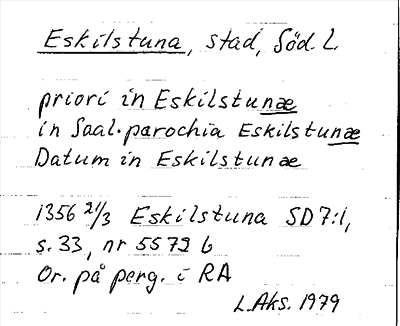 Eskilstuna, stad, Söd. L.
priori in Eskilstunæ
in Saal. parochia Eskilstunæ
Datum in Eskilstunæ
1356 21/3 Eskilstuna SD 7:1,
s. 33, nr 5572 b
Or. på perg. i RA
L. Aks. 1979